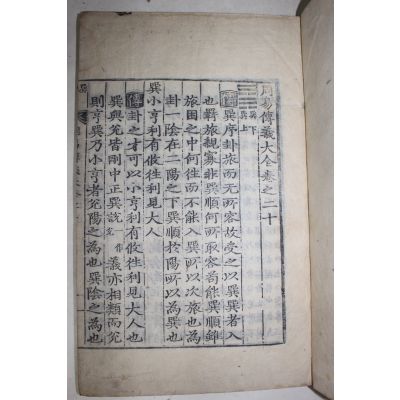 周易傳義大全卷之二十
巽下
巽上
傳巽序卦旅而无所容故受之以巽巽者入
也羇旅親寡非巽順何所取容苟能巽順雖
旅困之中何往而不能入巽所以次旅也爲
卦一陰在二陽之下巽順於陽所以爲巽也
巽小亨利有攸往利見大人
傳卦之才可以小亨利有攸往利見大人也
巽與兌皆剛中正巽說一作兌義亦相類而兌
則亨巽乃小亨者兌陽之爲也巽陰之爲也